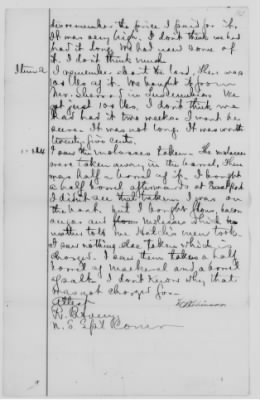 disremember the price I paid for it.
It was very high. I don't think we had
had it long. We had used some of
it. I don't think much.
Item 2 I remember about the lard. There was
100 lbs of it. We bought it from
Mr. We
got just 100 lbs. I don't think we
had had it two weeks. I wont be
sure. It was not long. It was worth
twenty five cents.
I saw the molasses taken. The molasses
were taken away in the barrel. There
was half a barrel of it. I bought
a half barrel afterwards at
I didn't see that taken. I was on
the bank. But I bought flour, bacon
sugar and from which my
mother told me men took.
I saw nothing else taken which is
charged. I saw them take a half
barrel of mackerel and a barrel
of salt. I don't know why that
was not charged for.
Attest
R. B.
U. S. Spl Comr